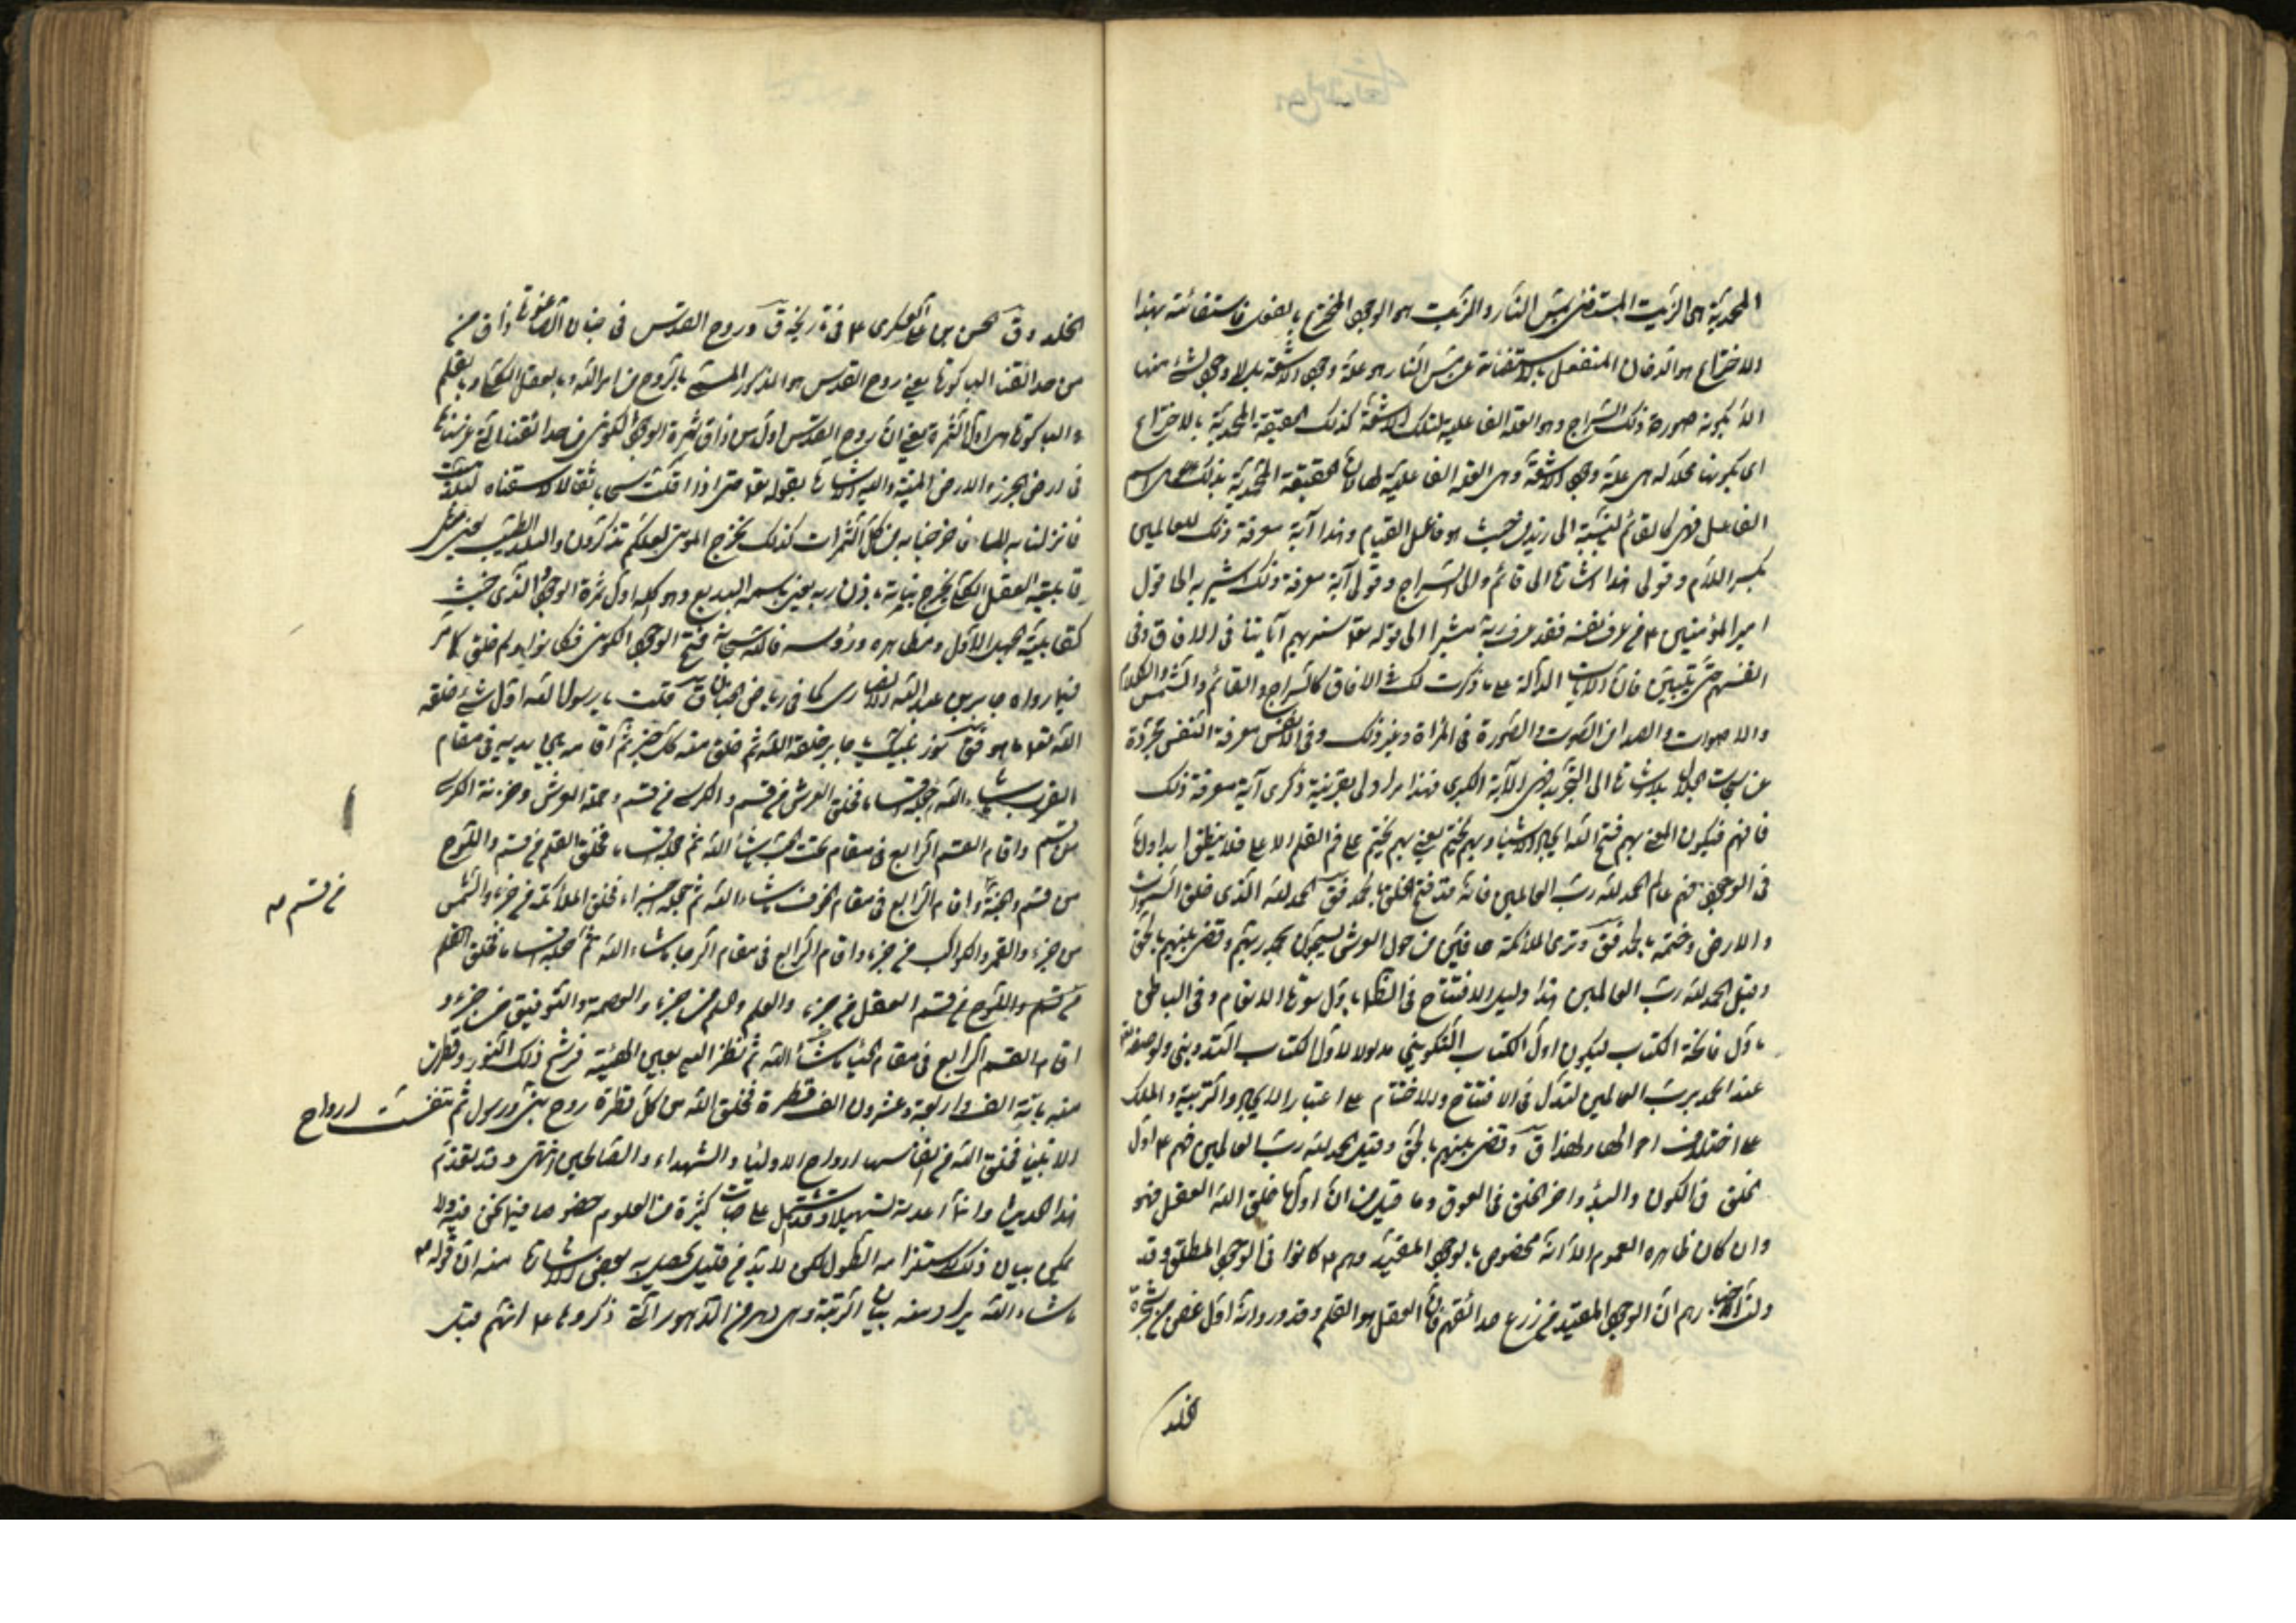 المحمدية هى الزيت المستضئ بمس النار والزيت هو الوجود المخترع بالفعل فاستضائته بهذا
الاختراع هو الدخان المنفعل بالاستضائة عن مس النار هو علة وجود الاشعة بدلا وجود لشئ منها
الا بكونه صورة ذلك السراج وهو العلة الفاعلية لتلك الاشعة كذلك الحقيقة المحمدية بالاختراع
اى بكونها محلا له هى علة وجود الاشعة وهى العلة الفاعلية لها لان الحقيقة المحمدية بذلك هى اسم
الفاعل فهى كالقائم بالنسبة الى زيد من حيث هو فاعل القيام وهذا آية معرفة ذلك للعالمين
بكسر اللام وقولى هذا اشارة الى قائم والى السراج وقولى آية معرفة ذلك اشير به الى قول
امير المؤمنين ع من عرف نفسه فقد عرف ربه مشيرا الى قوله تع سنريهم آياتنا فى الافاق وفى
انفسهم حتى يتبين فان الايات الدالة على ما ذكرت لك فى الافاق كالسراج والقائم والشمس والكلام
والاصوات والصدا من الصوت والصورة فى المرآة وغير ذلك وفى الانفس معرفة النفس مجردة
عن سبحات الجلال بلا اشارة الى التجريد فهى الآية الكبرى فهذا مرادى بقرينة ذكرى آية معرفة ذلك
فافهم فيكون المعنى بهم فتح الله ايجاد الاشياء وبهم يختم يعنى بهم يختم على فم القلم الاعلى فلا ينطق ابدا
فى الوجود فهم عالم الحمد لله رب العالمين فانه قد فتح الخلق بالحمد فق الحمد لله الذى خلق السموات
والارض وختمه بالحمد فق وترى الملائكة حافين من حول العرش يسبحون بحمد ربهم وقضى بينهم بالحق
وقيل الحمد لله رب العالمين هذا دليل الافتتاح فى الظاهر باول سورة الانعام وفى الباطن
باول فاتحة الكتاب ليكون اول الكتاب التكوينى مدلولا لاول الكتاب التدوينى ولوصفه
عند الحمد برب العالمين لتدل فى الافتتاح والاختتام على اعتبار الايجاد والتربية والملك
على اختلاف احوالها ولهذا ق وقضى بينهم بالحق وقيل الحمد لله رب العالمين فهم ع اول
الخلق فى الكون والبدؤ واخر الخلق فى العود وما قيل من ان اول ما خلق الله العقل فهو
وان كان ظاهره العموم الا انه مخصوص بالوجود المقيد وهم ع كانوا فى الوجود المطلق وقد
دلت اخبارهم ان الوجود المقيد من زرع حدائقهم فان العقل هو القلم وقد ورد انه اول غصن من شجرة
الخلد
الخلد وق الحسن بن على العسكرى ع فى تاريخه ق وروح القدس فى جنان الصاغورة ذاق من
من حدائقنا الباكورة يعنى روح القدس هو المذكور المسمى بالروح من امر الله وبالعقل الكلى وبالقلم
والباكورة هى اول الثمرة يعنى ان روح القدس اول من ذاق ثمرة الوجود الكونى من حدائقنا التى غرسناها
فى ارض الجرز والارض الميتة واليه الاشارة بقوله تع حتى اذا اقلت سحابا ثقالا سقناه لبلد ميت
فانزلنا به الماء فاخرجنا به من كل الثمرات كذلك نخرج الموتى لعلكم تذكرون والبلد الطيب يعنى مثل
قابلية العقل الكلى يخرج نباته باذن ربه يعنى باسمه البديع وهو كله اول ثمرة الوجود الذى خبث
كقابلية الجهل الاول ومظاهره ورؤسه فالله سبحانه فتح الوجود الكونى فكانوا بدء لمن خلق كما مر
فيما رواه جابر بن عبد الله الانصارى كما فى رياض الجنان ق قلت يا رسول الله اول شئ خلقه
الله تعا ما هو فق نور نبيك يا جابر خلقه الله ثم خلق منه كل خير ثم اقامه بين يديه فى مقام
القرب ما شاء الله ثم جعله اقساما فخلق العرش من قسم والكرسى من قسم وحملة العرش وخزنة الكرسى
من قسم واقام القسم الرابع فى مقام الحب ما شاء الله ثم جعله اقساما فخلق القلم من قسم واللوح
من قسم والجنة واقام الرابع فى مقام الخوف ما شاء الله ثم جعله اجزاء فخلق الملائكة من جزء والشمس
من قسم صح
من جزء والقمر والكواكب من جزء واقام الرابع فى مقام الرجا ما شاء الله ثم جعله اقساما فخلق القلم
من قسم واللوح من قسم العقل من جزء والعلم والحلم من جزء والعصمة والتوفيق من جزء و
اقام القسم الرابع فى مقام الحيا ما شاء الله ثم نظر اليه بعين الهيبة فرشح ذلك النور وقطرت
منه مائة الف واربعة وعشرون الف قطرة فخلق الله من كل قطرة روح نبى ورسول ثم تنفست ارواح
الانبياء فخلق الله من انفاسها ارواح الاولياء والشهداء والصالحين انتهى وقد تقدم
هذا الحديث وانما اعدته تسهيلا وقد اشتمل على جهات كثيرة من العلوم خصوصا فيما نحن فيه ولا
يمكن بيان ذلك لاستلزامه الطول لكن لا بد من قليل يحصل به بعض الاشارة منه ان قوله ص
ما شاء الله يراد منه بيان الرتبة وهى دهر من الدهور التى ذكروها ع انهم قبل